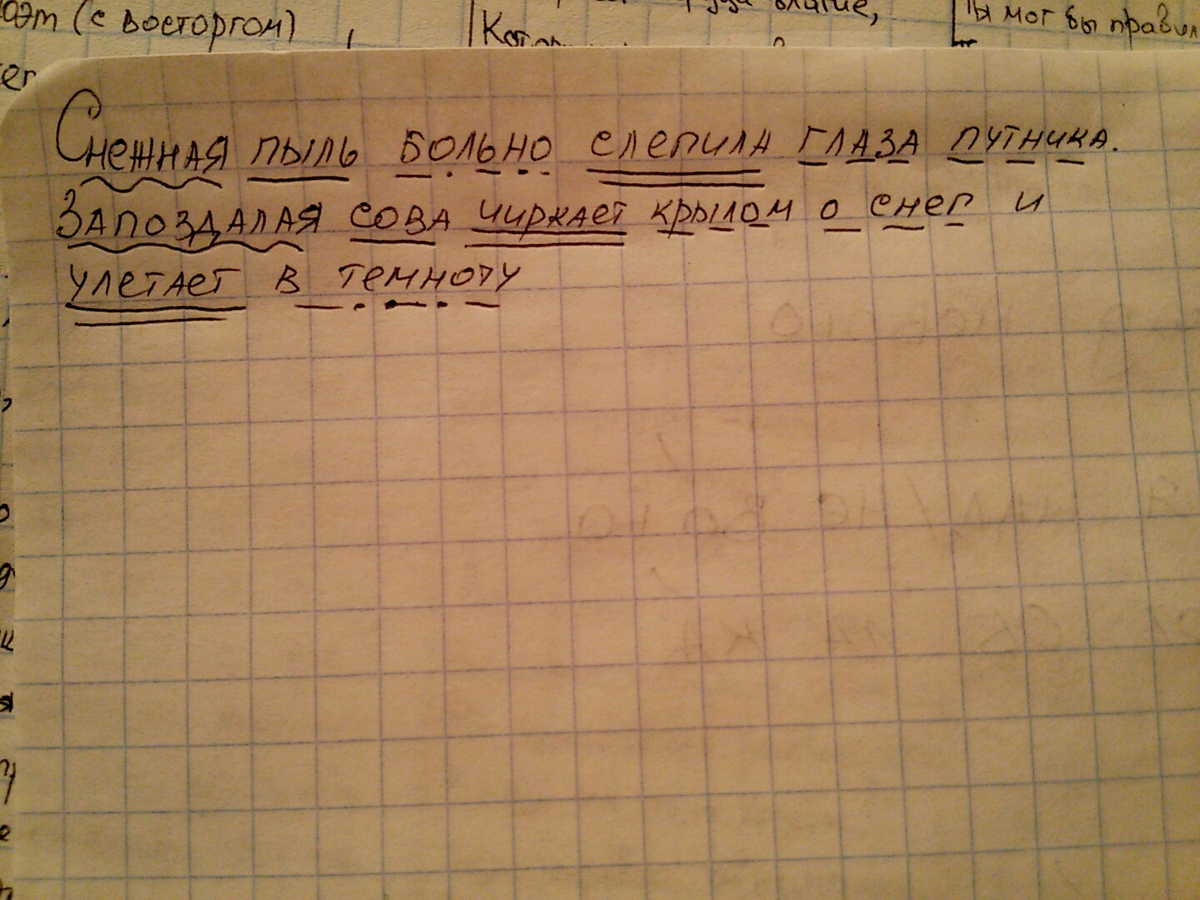 оэт (с восторгом) ,
Ты мог бы
Снежная пыль больно слепила глаза путника.
Запоздалая сова чиркает крылом о снег и
улетает в темноту